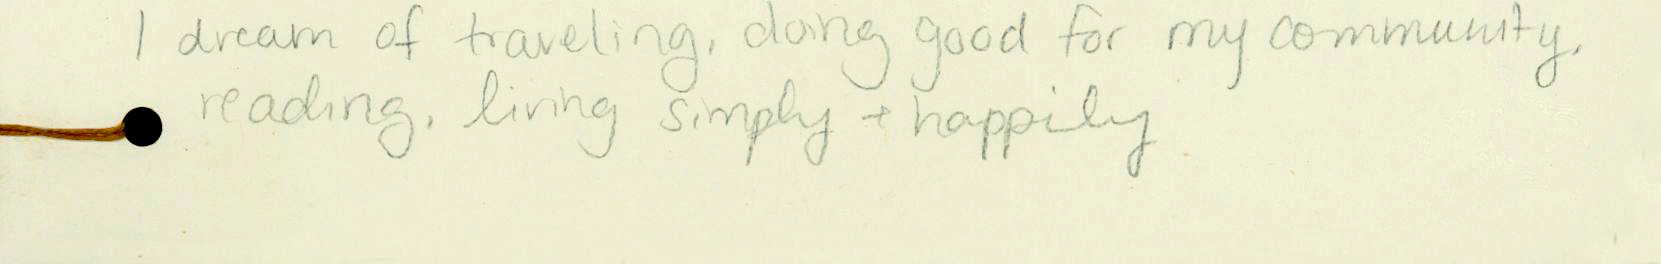 I dream of traveling, doing good for my community,
reading, living simply + happily